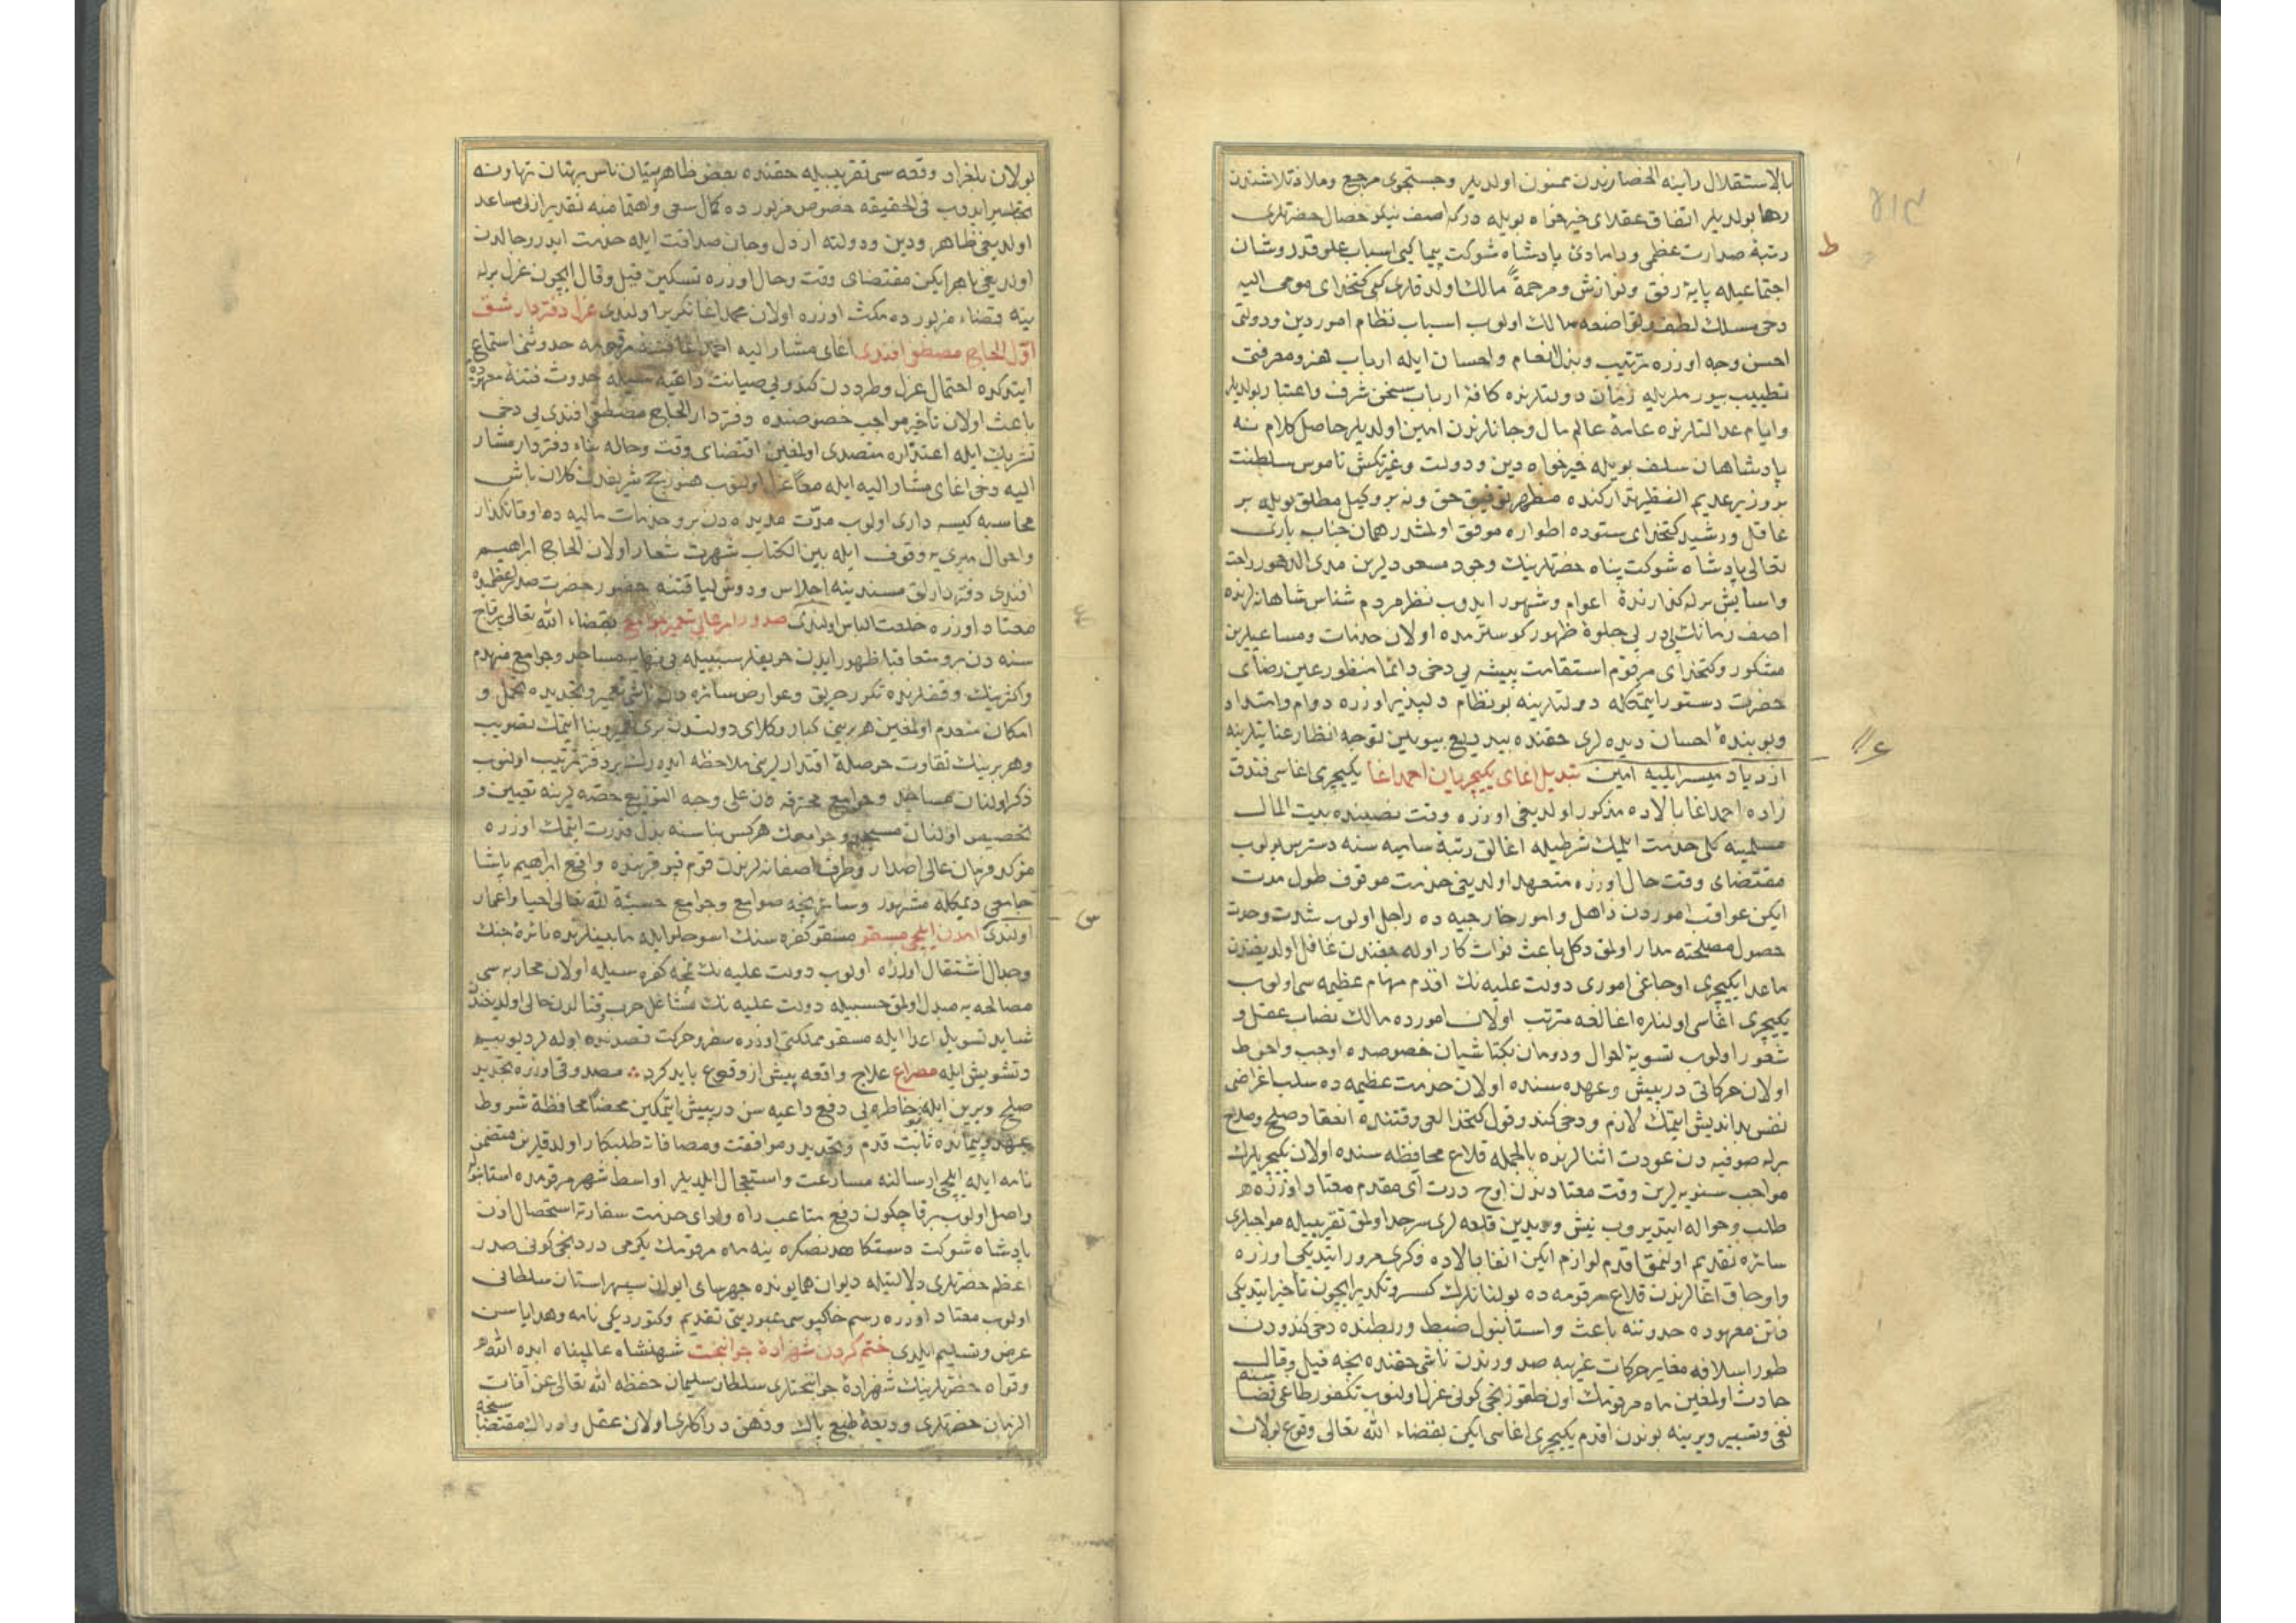 بالاستقلال رأينه انحصارندن ممنون اولديلر وجستجوى مرجع وملاذ تلاشندن
رها بولديلر اتفاق عقلاى خيرخواه بويله دركه اصف نيكو خصال حضرتلرى
رتبهٔ صدارت عظمى ودامادئ پادشاه شوكت پيما كبى اسباب علو قدر وشان
اجتماعيله پايهٔ رفق ونوازش ومرحمهٔ مالك اولدقلرى كبى كتخداى مومى اليه
دخى مسلك لطف وتواضعه سالك اولوب اسباب نظام امور دين ودولتى
احسن وجه اوزره ترتيب وبذل انعام واحسان ايله ارباب هنر ومعرفتى
تطييب بيورملريله زمان دولتلرنده كافهٔ ارباب سخن شرف واعتبار بولديلر
وايام عدالتلرنده عامهٔ عالم مال وجانلرندن امين اولديلر حاصل كلام نه
پادشاهان سلف بويله خيرخواه دين ودولت وغيرتكش ناموس سلطنت
بر وزير عديم النظير تداركنده مظهر توفيق حق ونه بر وكيل مطلق بويله بر
عاقل ورشيد كتخداى ستوده اطواره موفق اولمشدر همان جناب بارى
تعالى پادشاه شوكت پناه حضرتلرينك وجود مسعودلرين مدى الدهور راحت
واسايش برله كذارندهٔ اعوام وشهور ايدوب نظر مردم شناس شاهانه لرنده
اصف زمانك پى در پى جلوهٔ ظهور كوسترمده اولان خدمات ومساعيلرين
مشكور وكتخداى مرقوم استقامت پيشه يى دخى دائما منظور عين رضاى
حضرت دستور ايتمكله دولتلرينه بو نظام دلپذير اوزره دوام وامتداد
وبو بندهٔ احسان ديده لرى حقنده بيدريغ بيوريلن توجه انظار عنايتلرينه
ازدياد ميسر ايليه امين تبديل اغاى يكيچريان احمد اغا يكيچرى اغاسى فندق
زاده احمد اغا بالاده مذكور اولديغى اوزره وقت نصبنده بيت المال
مسلمينه كلى خدمت ايلمك شرطيله اغالق رتبهٔ ساميه سنه دسترس اولوب
مقتضاى وقت حال اوزره متعهد اولديغى خدمت موقوف طول مدت
ايكن عواقب اموردن ذاهل وامور خارجيه ده راجل اولوب شدت وحدت
حصول مصلحته مدار اولمق دكل باعث فوات كار اوله جغندن غافل اولديغندن
ماعدا يكيچرى اوجاغى امورى دولت عليه نك اقدم مهام عظيمه سى اولوب
يكيچرى اغاسى اولنلره اغالغه مترتب اولان امورده مالك نصاب عقل و
شعور اولوب تسويهٔ احوال دودمان بكتاشيان خصوصده اوجب واحوط
اولان حركاتى درپيش وعهده سنده اولان خدمت عظيمه ده سلب اغراض
نفس بدانديش ايتمك لازم ودخى كندو قول كتخدالغى وقتنده انعقاد صلح وصلاح
برله صوفيه دن عودت اثنالرنده بالجمله قلاع محافظه سنده اولان يكيچريلرك
مواجب سنويه لرين وقت معتادندن اوچ درت آى مقدم معتاد اوزره
طلب وحواله ايتديروب نيش وويدين قلعه لرى سرحد اولمق تقريبيله مواجبلرى
سائره تقديم اولنمق اقدم لوازم ايكن انفا بالاده ذكرى مرور ايتديكى اوزره
واوجاق اغالرندن قلاع مرقومه ده بولنانلرك كسر وتكديرايچون تأخير ايتديكى
فتن معهوده حدوثنه باعث واستانبول ضبط وربطنده دخى كندودن
طور اسلافه مغاير حركات غريبه صدورندن ناشى حقنده نيجه قيل وقال
حادث اولمغين ماه مرقومك اون طقوزنجى كونى عزل اولنوب تكفور طاغى قضاسنه
نفى وتسيير ويرينه بوندن اقدم يكيچرى اغاسى ايكن بقضاء الله تعالى وقوع بولان
بولان بلغراد وقعه سى تقريبيله حقنده بعض ظاهر بينان ناس بهتان تهاونه
ايدوب فى الحقيقه خصوص مزبورده كمال سعى واهتمامنه تقدير ازلى مساعد
اولمديغى ظاهر ودين ودولته از دل وجان صداقت ايله خدمت ايدر رجالدن
اولديغى باهر ايكن مقتضاى وقت وحال اوزره تسكين قيل وقال ايچون عزل برله
ينه قضاء مزبورده مكث اوزره اولان محمد اغا تكرير اولندى عزل دفتردار شق
اوّل الحاج مصطفى افندى اغاى مشار اليه احمد اغا فتنهٔ مرقومه حدوثنى استماع
ايتدكده احتمال عزل وطرددن كندويى صيانت داعيه سيله حدوث فتنهٔ معهوده
باعث اولان تأخير مواجب خصوصنده دفتردار الحاج مصطفى افندى يى دخى
تشريك ايله اعتذاره متصدى اولمغين اقتضاى وقت وحاله بناء دفتردار مشار
اليه دخى اغاى مشار اليه ايله معاً عزل اولنوب هنوز حج شريفدن كلان باش
محاسبه كيسه دارى اولوب مدّت مديده دن برو خدمات ماليه ده اوقاتكذار
واحوال ميرى يه وقوف ايله بين الكتاب شهرت شعار اولان الحاج ابراهيم
افندى دفتردارلق مسندينه اجلاس ودوش لياقتنه حضور حضرت صدراعظميده
معتاد اوزره خلعت الباس اولندى صدور امر عالى تعمير جوامع بقضاء الله تعالى برقاچ
سنه دن برو متعاقبا ظهور ايدن حريقلر سببيله بى نهايه مساجد وجوامع منهدم
واكثرينك وقفلرنده تكرر حريق وعوارض سائره دن ناشى تعمير وتجديده تحمل و
امكان منعدم اولمغين هر برينى كبار وكلاى دولتدن برى تعمير وبنا ايتمك تصويب
وهر برينك تفاوت حوصلهٔ اقتدارلرينى ملاحظه ايده رك بر دفتر ترتيب اولنوب
ذكر اولنان مساجد وجوامع محترقه دن على وجه التوزيع حصه لرينه تعيين و
تخصيص اولنان مسجد وجوامعك هركس بناسنه بذل قدرت ايتمك اوزره
مؤكد فرمان عالى اصدار وطرف اصفانه لرندن قوم قپو قربنده واقع ابراهيم پاشا
جامعى ديمكله مشهور وسائر نيجه صوامع وجوامع حسبةً لله تعالى احيا واعمار
اولندى آمدن ايلچى مسقو مسقو كفره سنك اسوجلو ايله مابينلرنده نائرهٔ جنك
وجدال اشتعال اوزره اولوب دولت عليه نك نمچه كفره سيله اولان محاربه سى
مصالحه يه مبدل اولمق حسبيله دولت عليه نك مشاغل حرب وقتالدن خالى اولديغندن
شايد تسويل اعدا ايله مسقو مملكتى اوزره سفر وحركت قصدنده اوله لر ديو بيم
وتشويش ايله مصراع علاج واقعه پيش از وقوع بايد كرد ∴ مصدوقى اوزره تجديد
صلح ويرين ايله بو خاطره يى دفع داعيه سن درپيش ايتمكين محضا محافظهٔ شروط
عهد وپيمانده ثابت قدم وتجديد موافقت ومصافات طلبكار اولدقلرين متضمن
نامه ايله ايلچى ارسالنه مسارعت واستعجال ايلديلر اواسط شهر مرقومده استانبوله
واصل اولوب برقاچكون دفع متاعب راه واداى خدمت سفارته استحصال اذن
پادشاه شوكت دستكاهدنصكره ينه ماه مرقومك يكرمى دردنجى كونى صدر
اعظم حضرتلرى دلالتيله ديوان همايونده چهرساى ايوان سپهر استان سلطانى
اولوب معتاد اوزره رسم خاكبوسى عبوديتى تقديم وكتورديكى نامه وهداياسن
عرض وتسليم ايلدى ختم كردن شهزادهٔ جوانبخت شهنشاه عالمپناه ايده الله
وقواه حضرتلرينك شهزادهٔ جوانبختلرى سلطان سليمان حفظه الله تعالى عن آفات
الزمان حضرتلرى وديعهٔ طبع پاك وذهن دراكلرى اولان عقل وادراك مقتضاسنجه